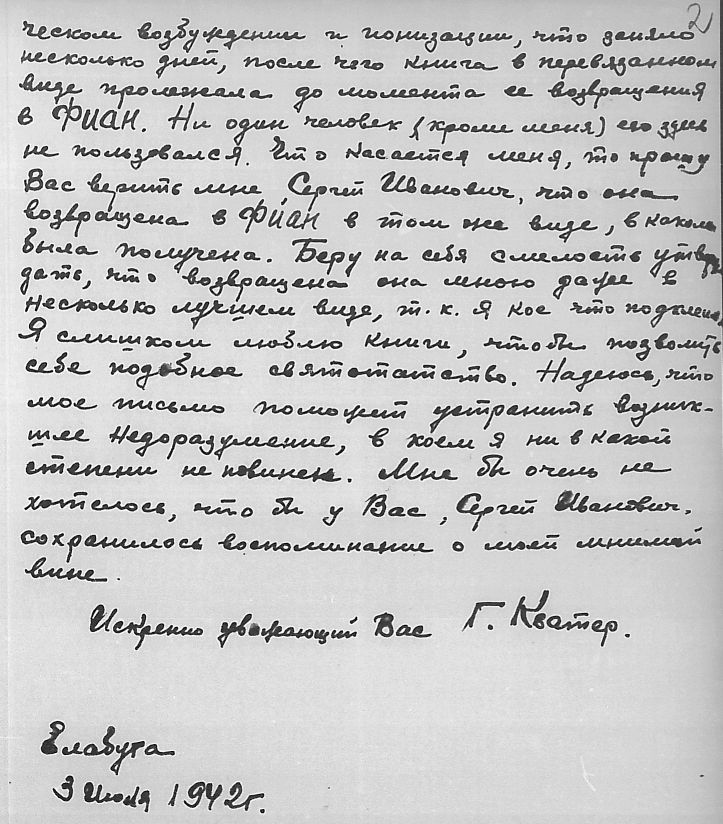 2
ческом возбуждении и ионизации, что заняло
несколько дней, после чего книга в перевязанном
виде пролежала до момента ее возвращения
в ФИАН. Ни один человек (кроме меня) ею здесь
не пользовался. Что касается меня, то прошу
Вас верить мне, Сергей Иванович, что она
возвращена в ФИАН в том же виде, в каком
была получена. Беру на себя смелость утвер-
дать, что возвращена она мною даже в
несколько лучшем виде, т.к. я кое что подклеил.
Я слишком люблю книги, чтобы позволить
себе подобное святотатство. Надеюсь, что
мое письмо поможет устранить возник-
шее недоразумение, в коем я ни в какой
степени не повинен. Мне бы очень не
хотелось, что бы у Вас, Сергей Иванович,
сохранилось воспоминание о моей мнимой
вине.
Искренно уважающий Вас Г. Кватер.
Елабуга
3 июля 1942г.